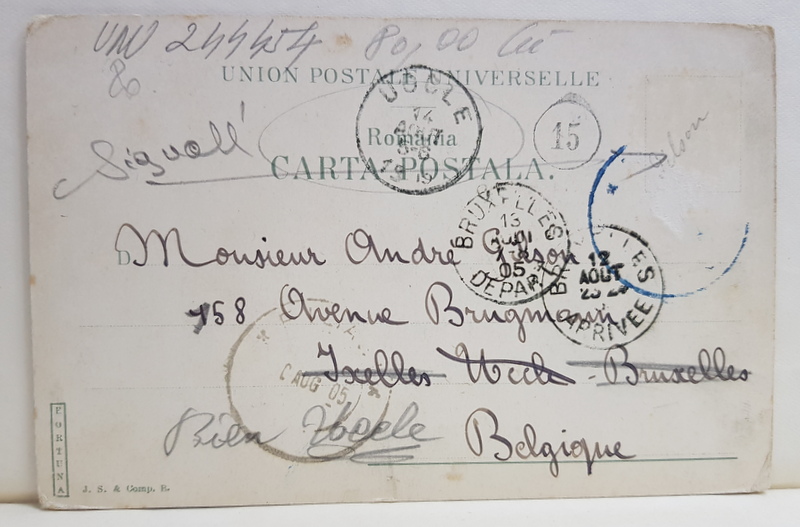 UNU 244454 80,00 lei
80
UNION POSTALE UNIVERSELLE
UCCLE
12
AOUT
5-6
1905
15
Romania
Signall
CARTA POSTALA.
BRUXELLES
13
05
DEPART
BRUXELLES
12
AOUT
ARRIVEE
Monsieur André
158 Avenue Brugmann
Ixelles Uccle - Bruxelles
AUG 05
Bien Uccle
Belgique
FORTUNA
J. S. & Comp. B.